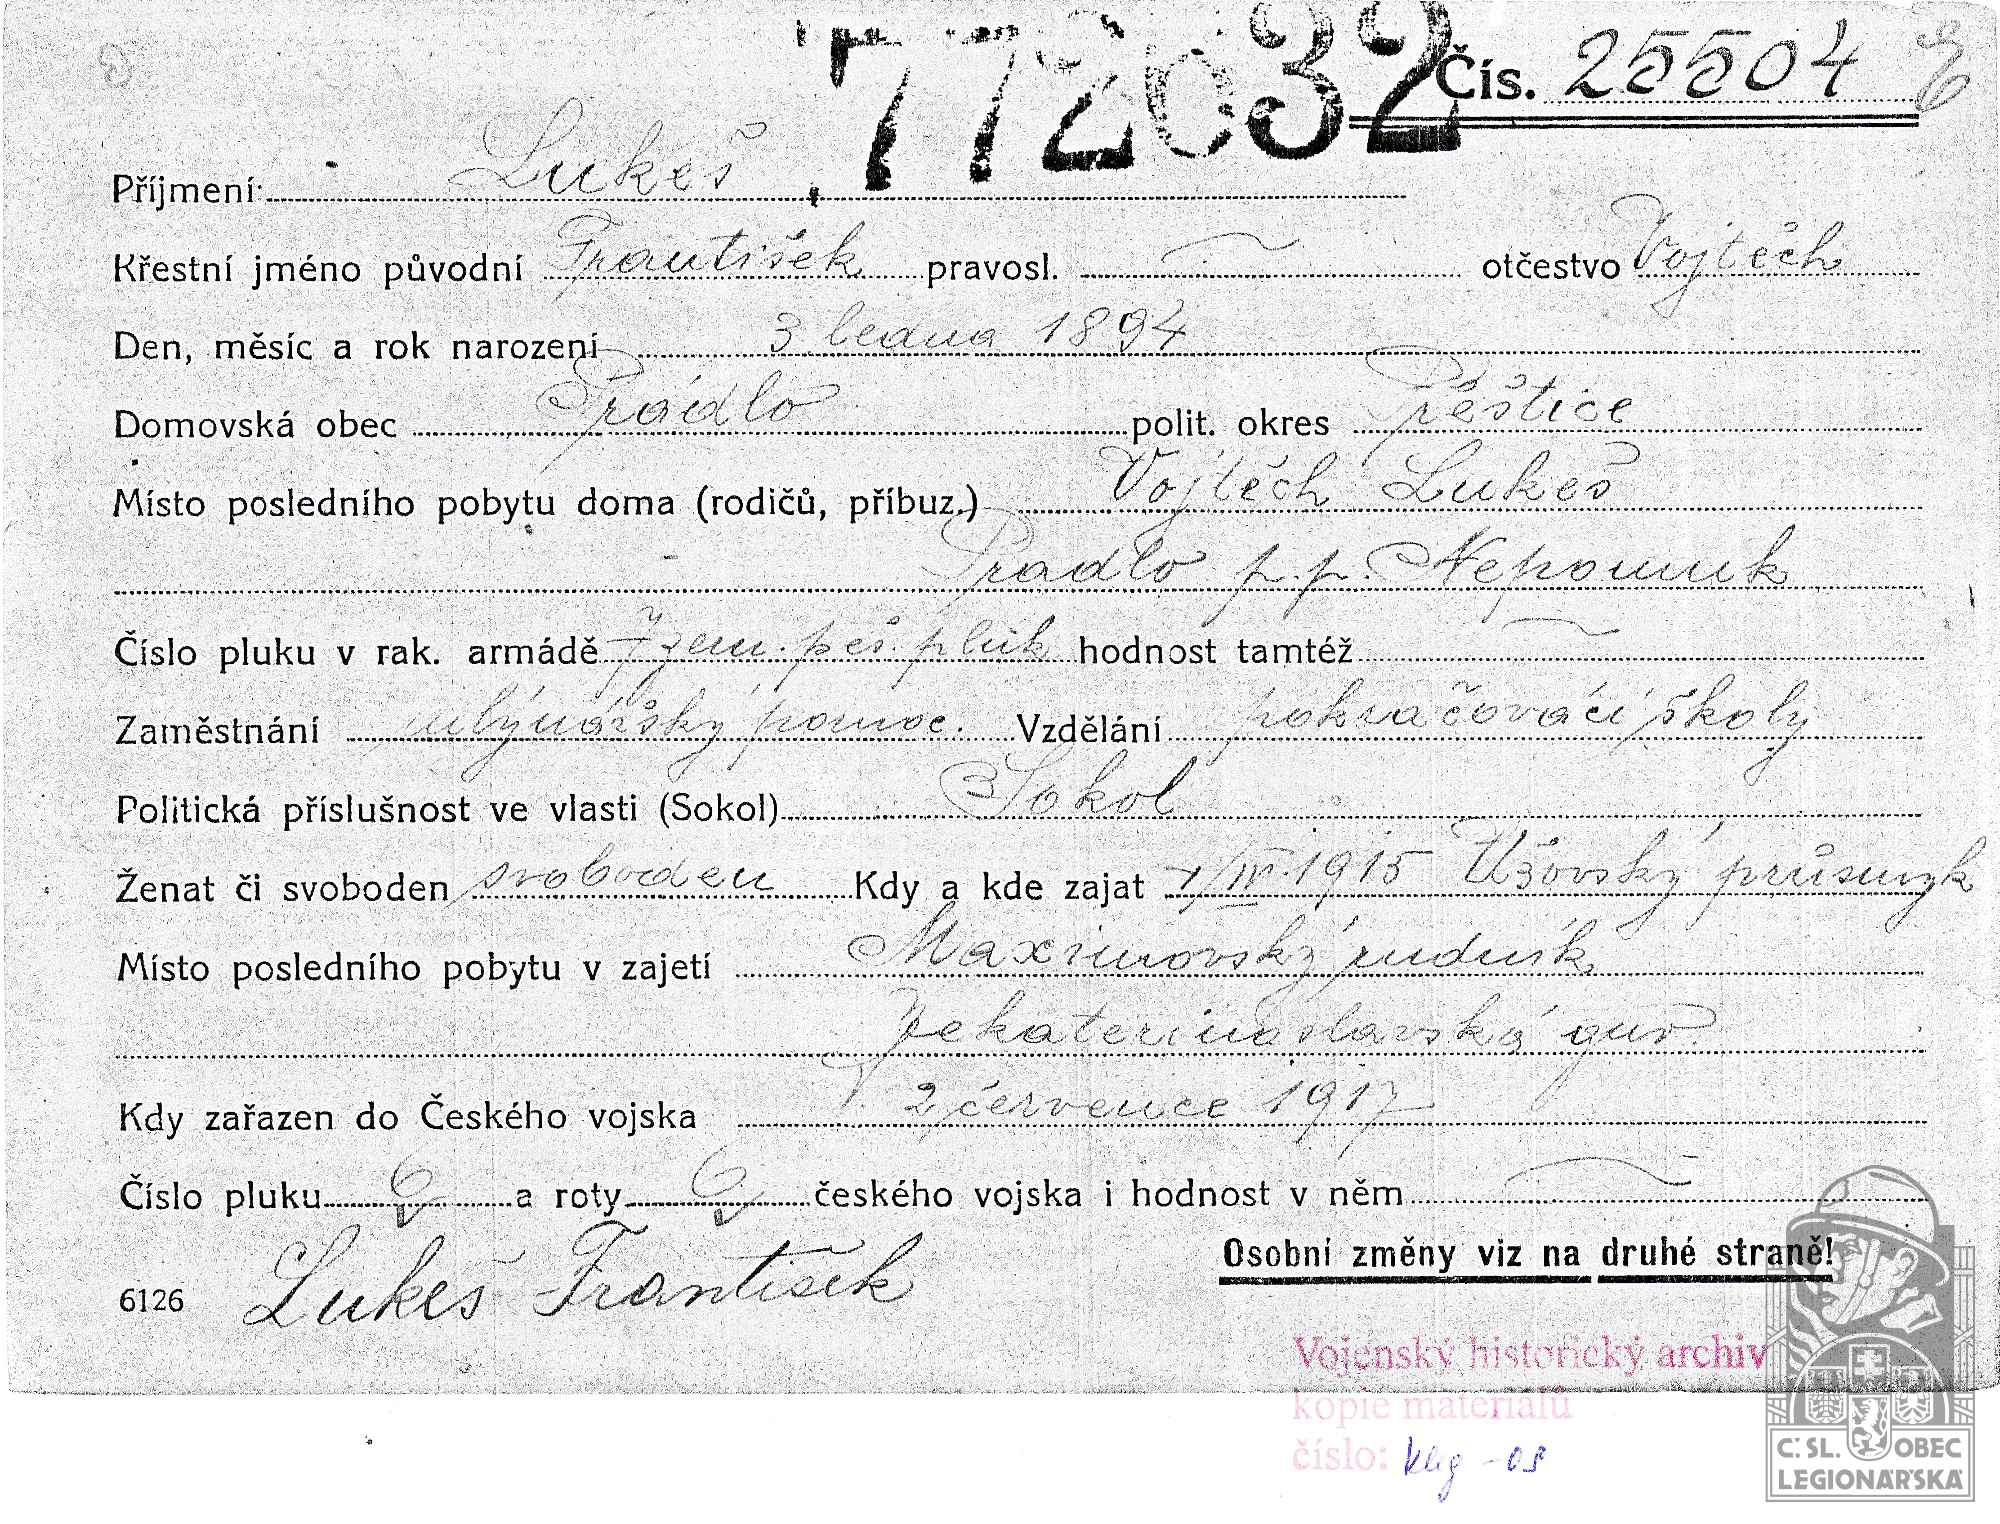 772632 Čís. 25504
Příjmení Lukeš
Křestní jméno původní František pravosl. — otčestvo Vojtěch
Den, měsíc a rok narození 3. ledna 1894
Domovská obec Prádlo polit. okres Přěštice
Místo posledního pobytu doma (rodičů, příbuz.) Vojtěch Lukeš
Pradlo p. p. Nepomuk
Číslo pluku v rak. armádě 7 zem. pěš. pluk hodnost tamtéž —
Zaměstnání mlýnářský pomoc. Vzdělání pokračovací školy
Politická příslušnost ve vlasti (Sokol) Sokol
Ženat či svoboden svoboden Kdy a kde zajat 1/IV. 1915 Užovský průsmyk
Místo posledního pobytu v zajetí Maximovský rudník
Jekaterinoslavská guv.
Kdy zařazen do Českého vojska 2 července 1917
Číslo pluku 6 a roty 6 českého vojska i hodnost v něm —
Lukeš František
Osobní změny viz na druhé straně!
6126
Vojenský historický archiv
kopie materiálů
číslo:
Č.SL. OBEC
LEGIONÁŘSKÁ